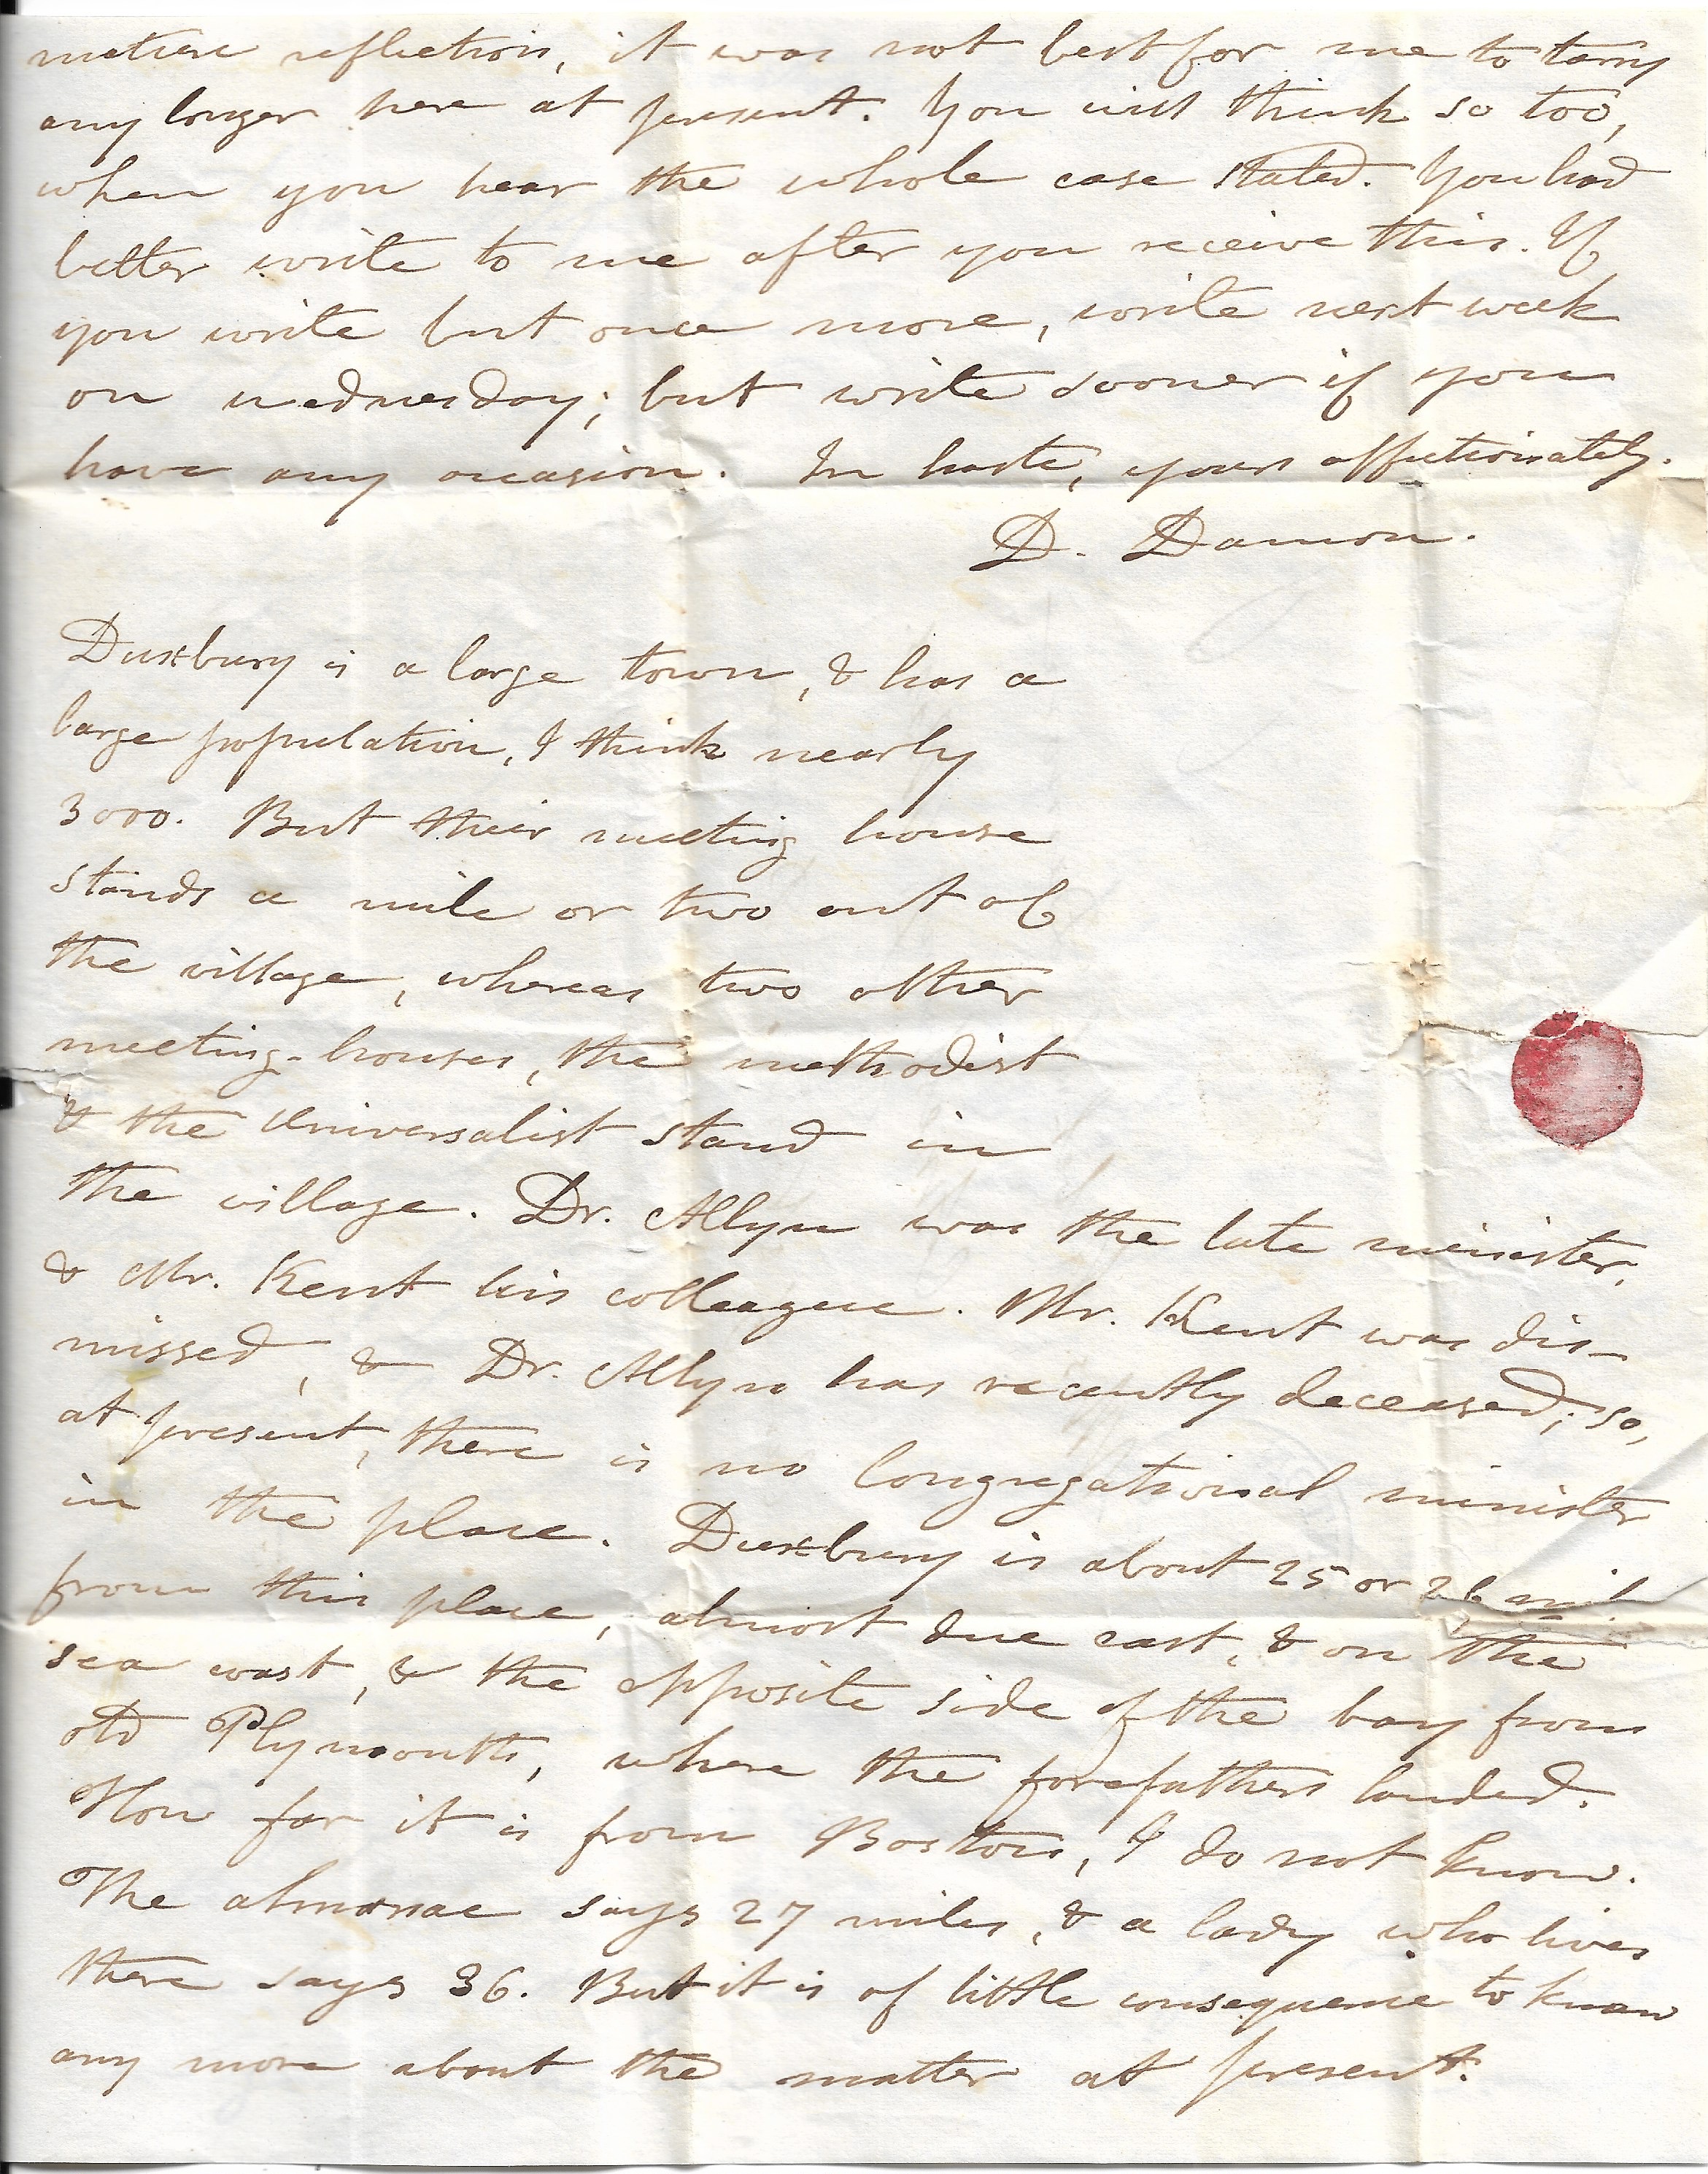 mature reflection, it was not best for me to tarry
any longer here at present. You will think so too,
when you hear the whole case stated. You had
better write to me after you receive this. If
you write but once more, write next week
on wednesday; but write sooner if you
have any occasion. In haste, yours affectionately.
D. Damon.
Duxbury is a large town, & has a
large population, I think nearly
3000. But their meeting house
stands a mile or two out of
the village, whereas two other
meeting-houses, the methodist
& the Universalist stand in
the village. Dr. Allyn was the late minister,
& Mr. Kent his colleague. Mr. Kent was dis-
missed, & Dr. Allyn has recently deceased; so,
at present, there is no Congregational minister
in the place. Duxbury is about 25 or 26
from this place, almost due east, & on the
sea coast, & the opposite side of the bay from
old Plymouth, where the forefathers landed.
How far it is from Boston, I do not know.
The almanac says 27 miles, & a lady who lives
there says 36. But it is of little consequence to know
any more about the matter at present.